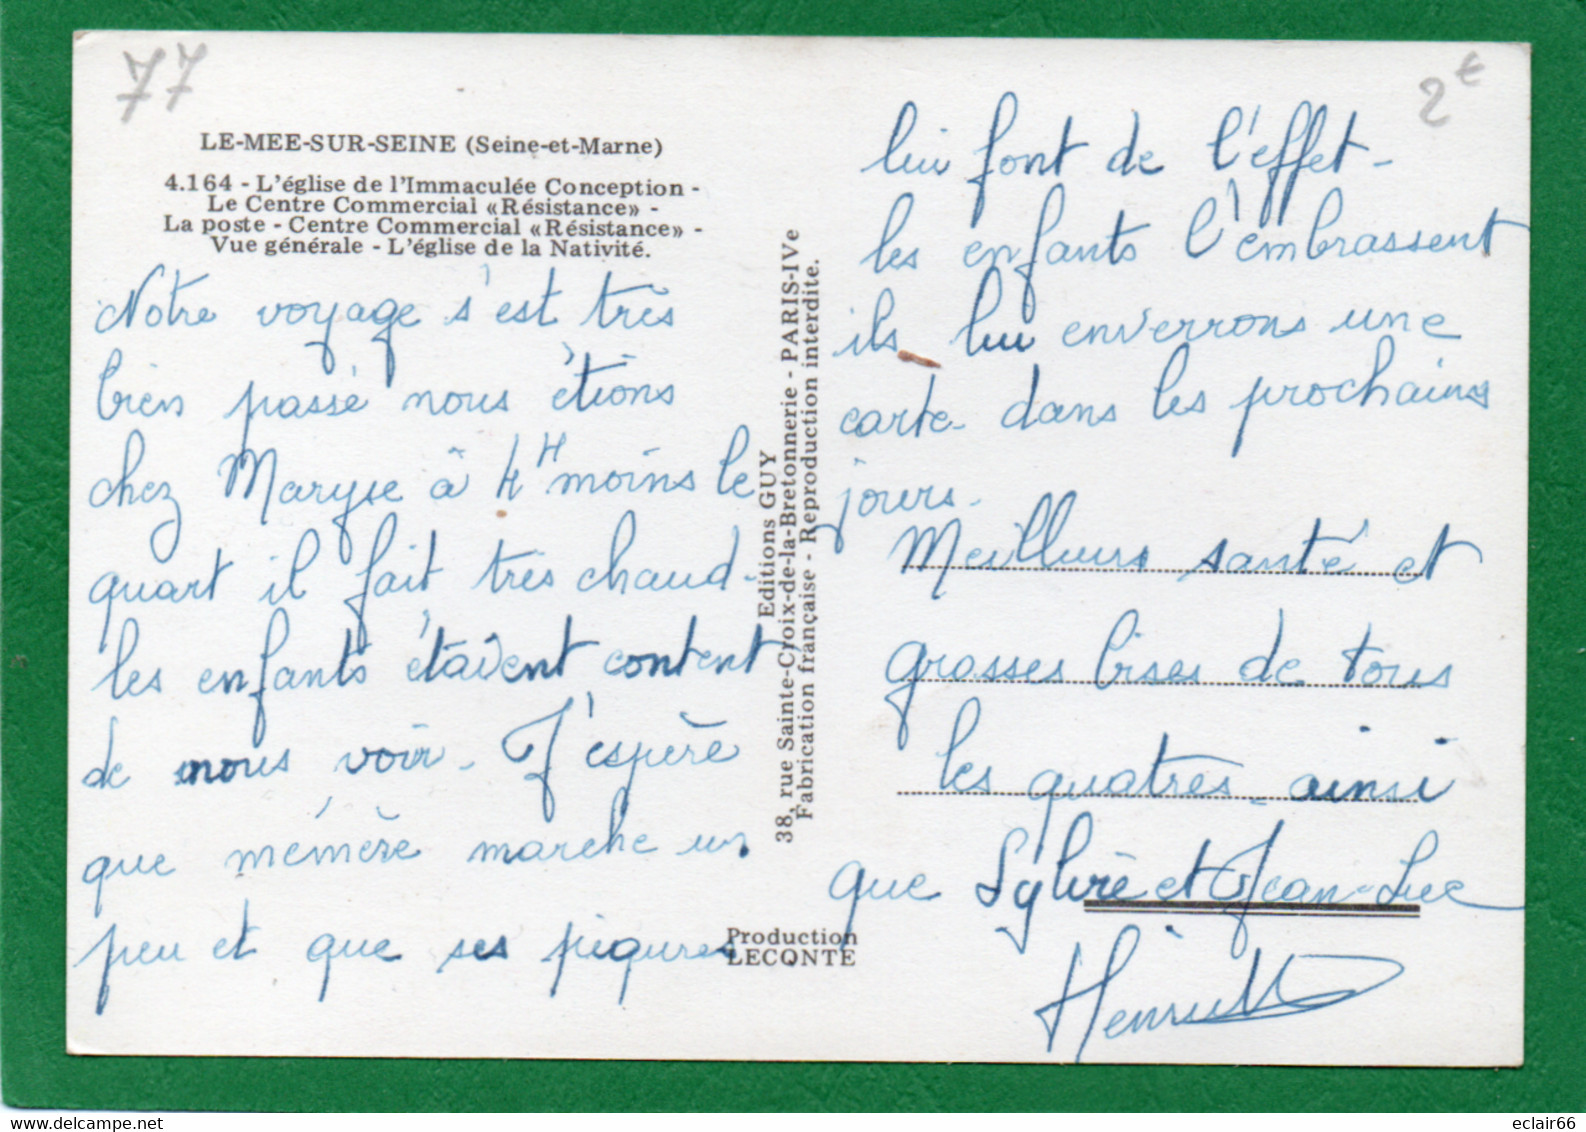 77
2€
LE-MEE-SUR-SEINE (Seine-et-Marne)
4.164 - L'église de l'Immaculée Conception -
Le Centre Commercial «Résistance» -
La poste - Centre Commercial «Résistance» -
Vue générale - L'église de la Nativité.
Notre voyage s'est très
bien passé nous étions
chez Maryse à 4H moins le
quart il fait très chaud -
les enfants étaient content
de nous voir - J'espère
que mémère marche un
peu et que ses piqures
Editions GUY
38, rue Sainte-Croix-de-la-Bretonnerie - PARIS-IVe
Fabrication française - Reproduction interdite.
Production
LECONTE
lui font de l'effet -
les enfants l'embrassent
ils lui enverrons une
carte dans les prochains
jours -
Meilleurs santé et
grosses bises de tous
les quatres - ainsi
que Sylvie et Jean-Luc
Henriette
eclair66